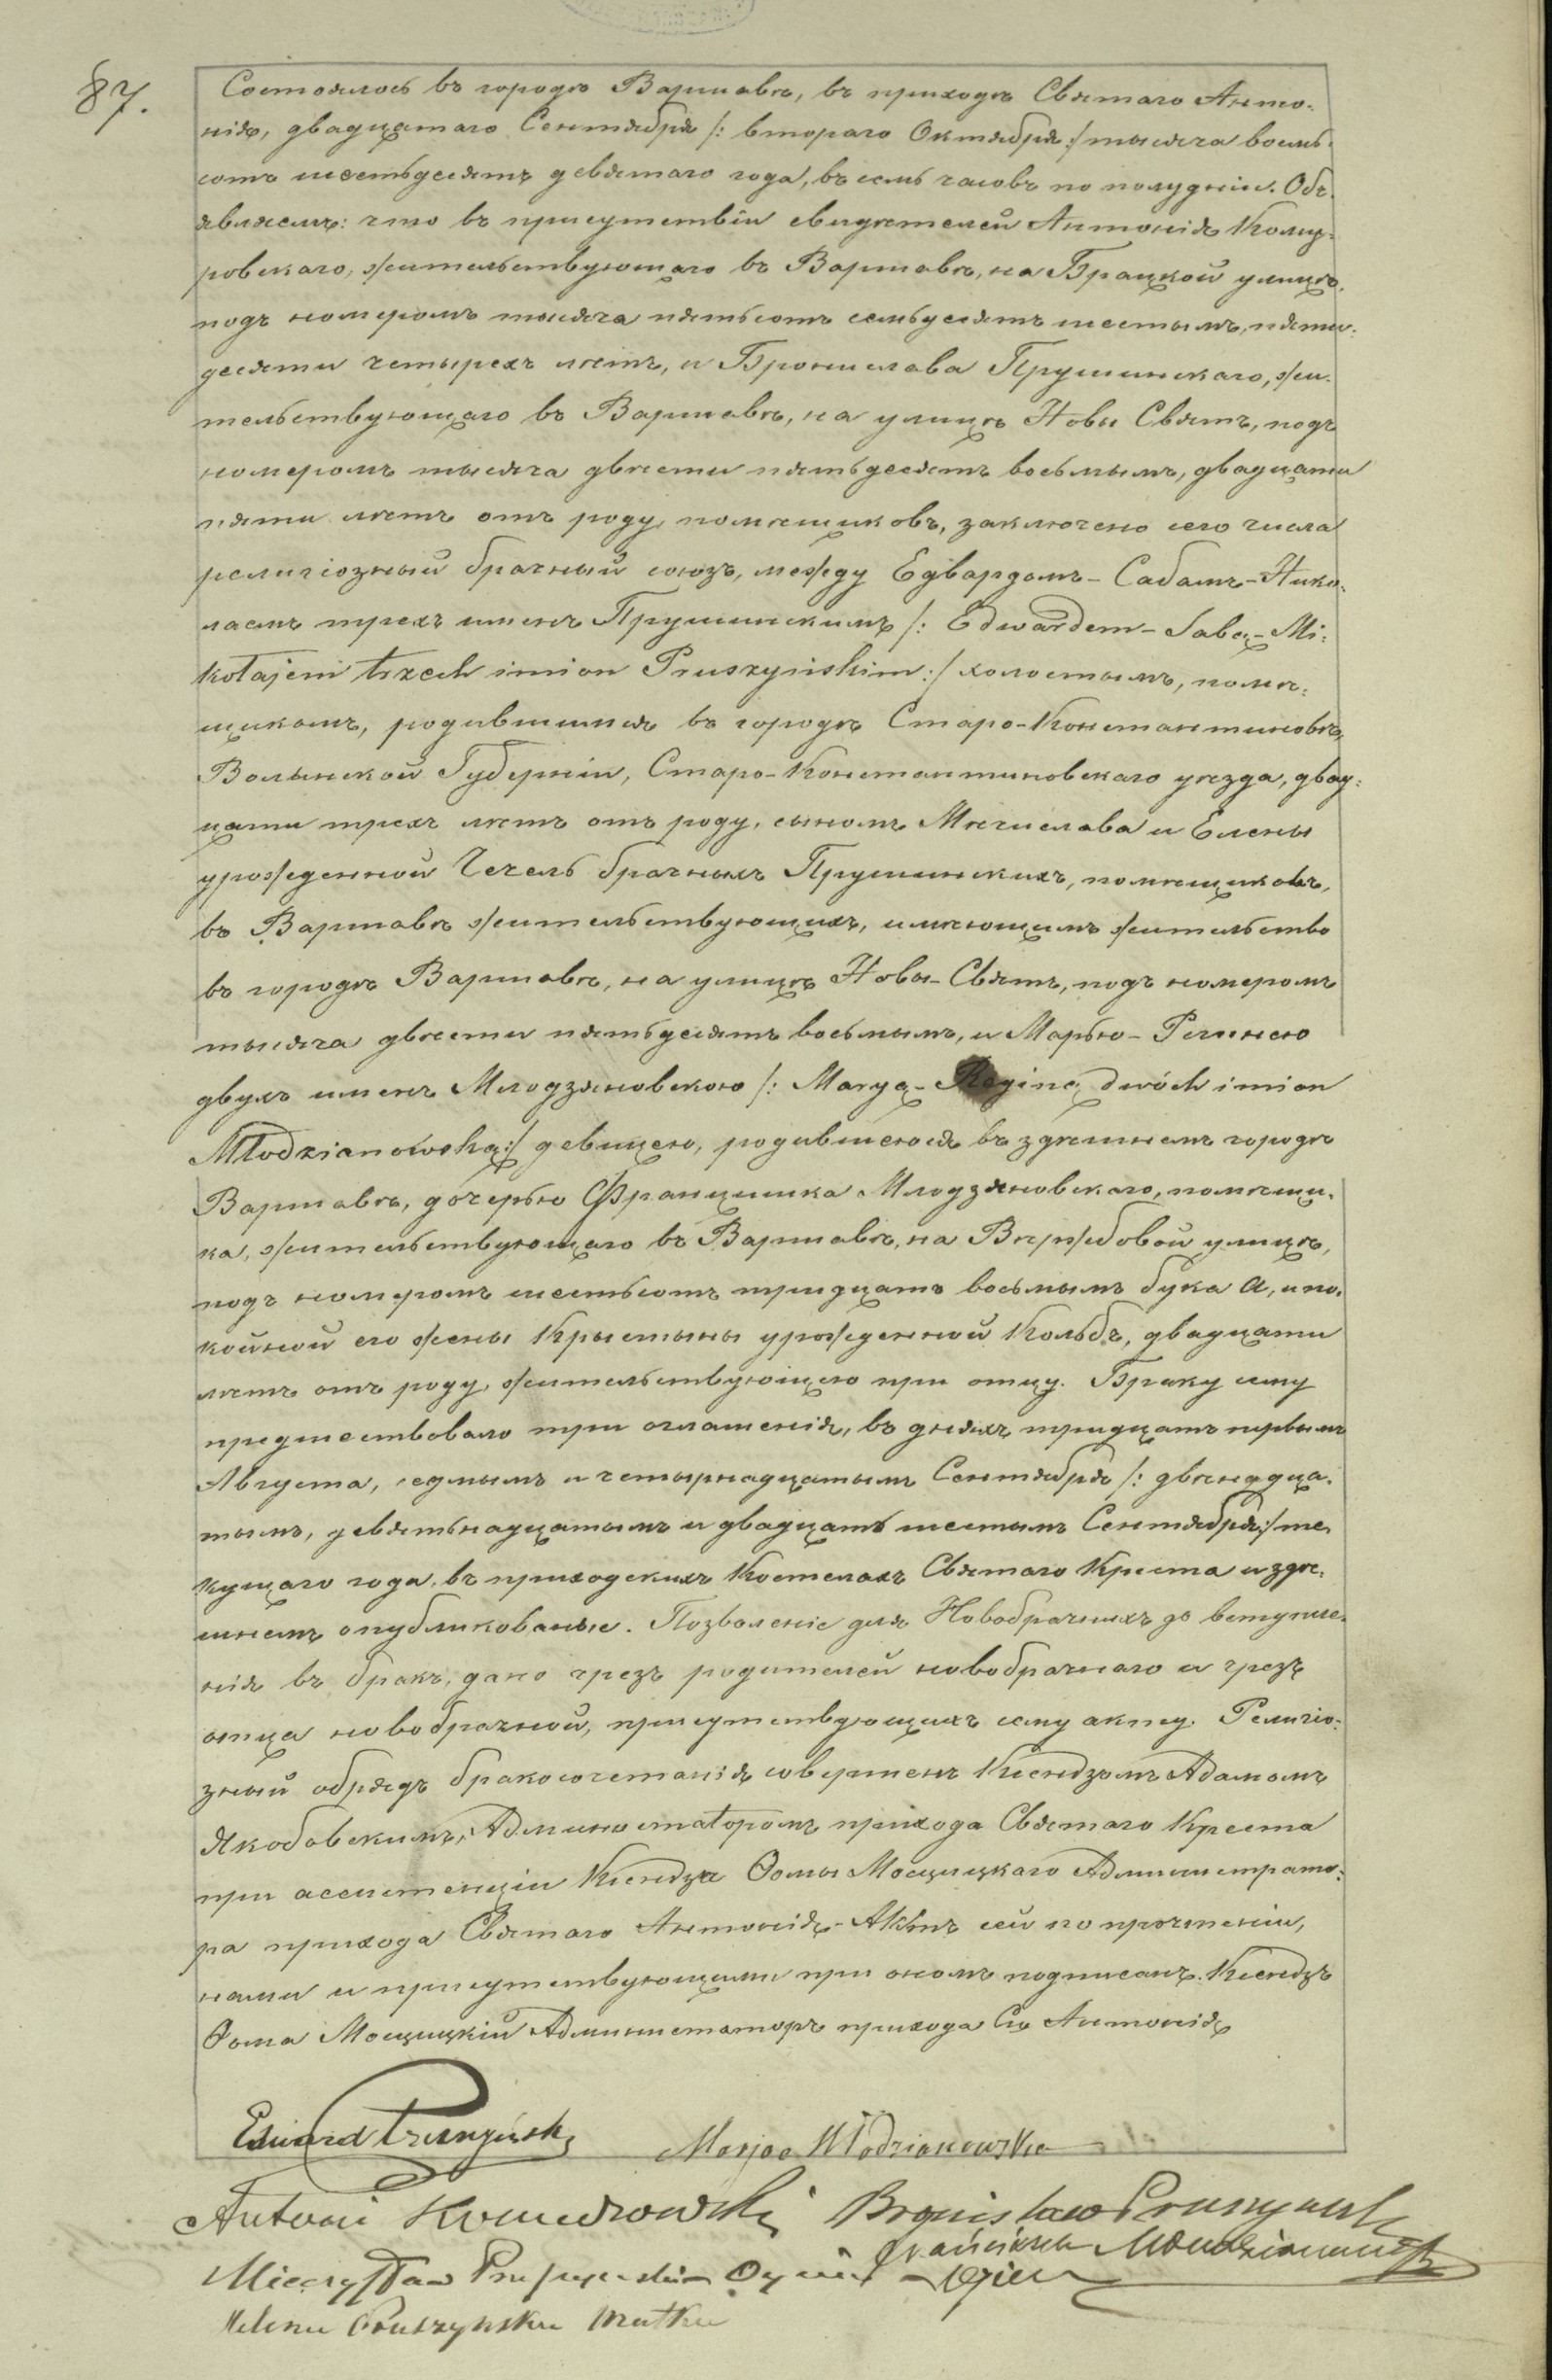 87.
Состоялось въ городѣ Варшавѣ, въ приходѣ Святаго Анто-
нія, двадцатаго Сентября /: втораго Октября :/ тысяча восемь-
сотъ шестьдесятъ девятаго года, въ семь часовъ по полудніи. Объ-
являемъ: что въ присутствіи свидѣтелей Антонія Кому-
ровскаго, жительствующаго въ Варшавѣ, на Брацкой улицѣ,
подъ номеромъ тысяча пятьсотъ семьдесятъ шестымъ, пяти-
десяти четырехъ лѣтъ, и Бронислава Прушинскаго, жи-
тельствующаго въ Варшавѣ, на улицѣ Новы Святъ, подъ
номеромъ тысяча двѣсти пятьдесятъ восьмымъ, двадцати
пяти лѣтъ отъ роду, помѣщиковъ, заключено сего числа
религіозный брачный союзъ, между Едвардомъ-Сабамъ-Нико-
лаемъ трехъ именъ Прушинскимъ /: Edwardem-Sabą-Mi-
kołajem trzech imion Pruszyńskim :/ холостымъ, помѣ-
щикомъ, родившимся въ городѣ Старо-Константиновѣ,
Волынской Губерніи, Старо-Константиновскаго уѣзда, двад-
цати трехъ лѣтъ отъ роду, сыномъ Мѣчислава и Елены
урожденной Чечель брачныхъ Прушинскихъ, помѣщиковъ,
въ Варшавѣ жительствующихъ, имѣющимъ жительство
въ городѣ Варшавѣ, на улицѣ Новы-Святъ, подъ номеромъ
тысяча двѣсти пятьдесятъ восьмымъ, и Марьею-Региною
двухъ именъ Млодзяновскою /: Maryą-Reginą dwóch imion
Młodzianowską :/ девицею, родившеюся въ здѣшнемъ городѣ
Варшавѣ, дочерью Францишка Млодзяновскаго, помѣщи-
ка, жительствующаго въ Варшавѣ, на Вержбовой улицѣ,
подъ номеромъ шестьсотъ тридцать восьмымъ бука А, и по-
койной его жены Крыстыны урожденной Кольбъ, двадцати
лѣтъ отъ роду, жительствующею при отцу. Браку сему
предшествовало три оглашенія, въ дняхъ тридцать первымъ
Августа, седмымъ и четырнадцатымъ Сентября /: двѣнадца-
тымъ, девятьнадцатымъ и двадцать шестымъ Сентября :/ те-
кущаго года, въ приходскихъ Костелахъ Святаго Креста и здѣ-
шнемъ опубликованые. Позволеніе для Новобрачныхъ до вступле-
нія въ бракъ, дано чрезъ родителей новобрачнаго и чрезъ
отца новобрачной, присутствующихъ сему акту. Религіо-
зный обрядъ бракосочетанія совершенъ Ксендзомъ Адамомъ
Якобовскимъ, Админостаторомъ прихода Святаго Креста
при ассистенціи Ксендза Ѳомы Мосцицкаго Администрато-
ра прихода Святаго Антонія. Актъ сей по прочтеніи,
нами и присутствующими при ономъ подписанъ. Ксендзъ
Ѳома Мосцицкій Администаторъ прихода Св. Антонія
Edward Pruszyński
Marja Młodzianowska
Antoni Komorowski Bronisław Pruszyński
Franciszek Młodzianowski
Mieczysław Pruszyński Ojciec
Ojciec
Helena Pruszyńska Matka